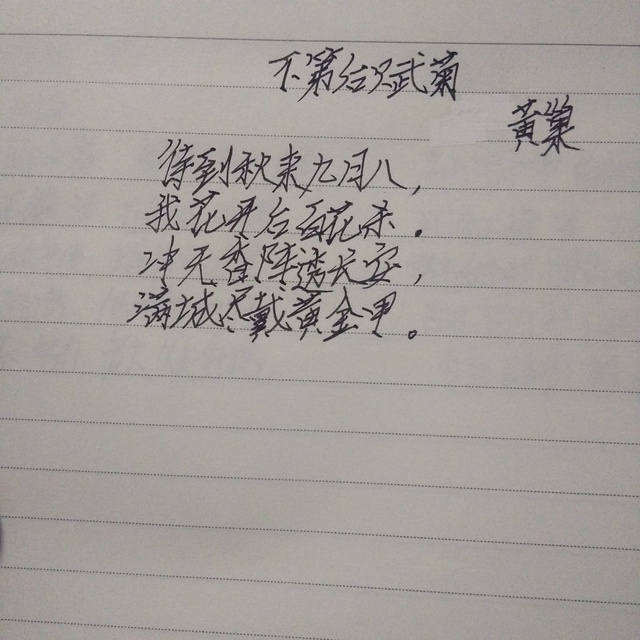 不第后武菊
黄巢
待到秋来九月八，
我花开后百花杀.
冲天香阵透长安，
满城尽戴黄金甲。